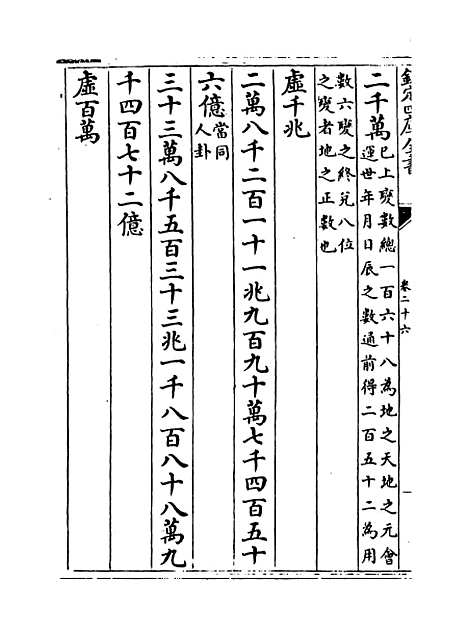 欽定四庫全書
卷二十六
二千萬
已上變數總一百六十八為地之天地之元會
運世年月日辰之數通前得二百五十二為用
數六變之終兌八位
之變者地之正數也
虛千兆
二萬八千二百一十一兆九百九十萬七千四百五十
六億
當同
人卦
三十三萬八千五百三十三兆一千八百八十八萬九
千四百七十二億
虛百萬